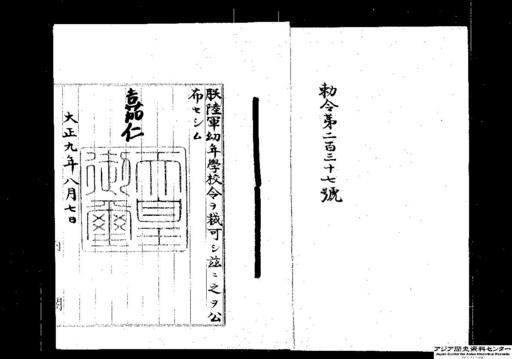 勅令第二百三十七號
朕陸軍幼年學校令ヲ裁可シ茲ニ之ヲ公
布セシム
嘉仁
天皇
御璽
大正九年八月七日
内
閣
アジア歴史資料センター
Japan Center for Asian Historical Records